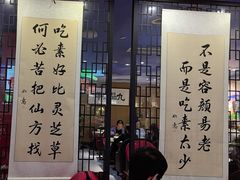 吃素好比灵芝草
何必苦把仙方找
不是容颜易老
而是吃素太少
九